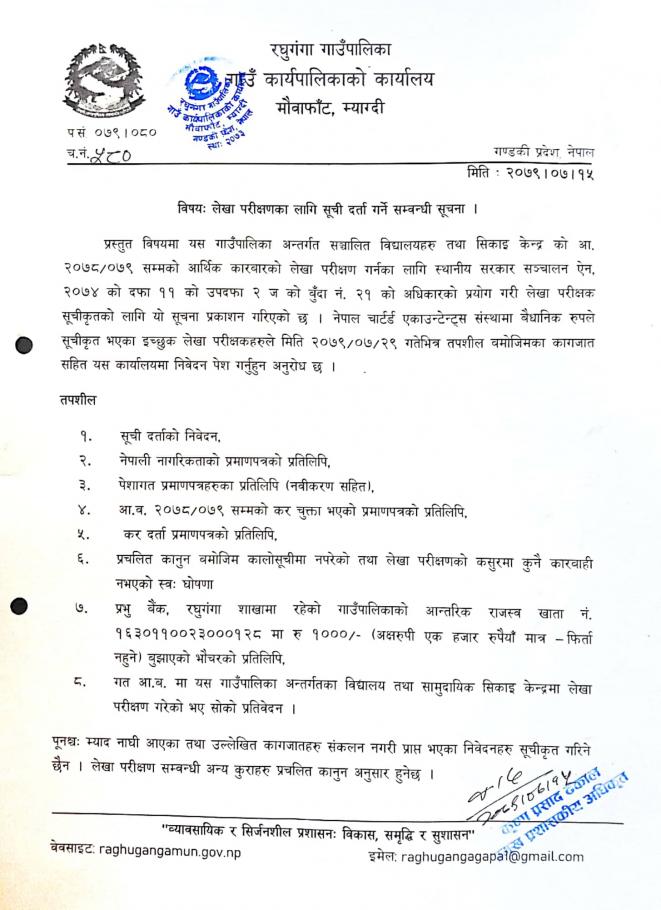 रघुगंगा गाउँपालिका
गाउँ कार्यपालिकाको कार्यालय
मौवाफाँट, म्याग्दी
रघुगंगा गाउँपालिका
गाउँ कार्यपालिकाको कार्यालय
मौवाफाँट, म्याग्दी
गण्डकी प्रदेश, नेपाल
स्थाः २०७३
प सं ०७९।०८०
च.नं. ५८०
गण्डकी प्रदेश, नेपाल
मिति : २०७९।०७।१५
विषयः लेखा परीक्षणका लागि सूची दर्ता गर्ने सम्बन्धी सूचना ।
प्रस्तुत विषयमा यस गाउँपालिका अन्तर्गत सञ्चालित विद्यालयहरु तथा सिकाइ केन्द्र को आ.
२०७८/०७९ सम्मको आर्थिक कारबारको लेखा परीक्षण गर्नका लागि स्थानीय सरकार सञ्चालन ऐन,
२०७४ को दफा ११ को उपदफा २ ज को बुँदा नं. २१ को अधिकारको प्रयोग गरी लेखा परीक्षक
सूचीकृतको लागि यो सूचना प्रकाशन गरिएको छ । नेपाल चार्टर्ड एकाउन्टेन्ट्स संस्थामा बैधानिक रुपले
सूचीकृत भएका इच्छुक लेखा परीक्षकहरुले मिति २०७९/०७/२९ गतेभित्र तपशील बमोजिमका कागजात
सहित यस कार्यालयमा निवेदन पेश गर्नुहुन अनुरोध छ ।
तपशील
१. सूची दर्ताको निवेदन,
२. नेपाली नागरिकताको प्रमाणपत्रको प्रतिलिपि,
३. पेशागत प्रमाणपत्रहरुका प्रतिलिपि (नवीकरण सहित),
४. आ.व. २०७८/०७९ सम्मको कर चुक्ता भएको प्रमाणपत्रको प्रतिलिपि,
५. कर दर्ता प्रमाणपत्रको प्रतिलिपि,
६. प्रचलित कानुन बमोजिम कालोसूचीमा नपरेको तथा लेखा परीक्षणको कसुरमा कुनै कारबाही
नभएको स्वः घोषणा
७. प्रभु बैंक, रघुगंगा शाखामा रहेको गाउँपालिकाको आन्तरिक राजस्व खाता नं.
१६३०११००२३०००१२८ मा रु १०००/- (अक्षरुपी एक हजार रुपैयाँ मात्र – फिर्ता
नहुने) बुझाएको भौचरको प्रतिलिपि,
८. गत आ.ब. मा यस गाउँपालिका अन्तर्गतका विद्यालय तथा सामुदायिक सिकाइ केन्द्रमा लेखा
परीक्षण गरेको भए सोको प्रतिवेदन ।
पूनश्चः म्याद नाघी आएका तथा उल्लेखित कागजातहरु संकलन नगरी प्राप्त भएका निवेदनहरु सूचीकृत गरिने
छैन । लेखा परीक्षण सम्बन्धी अन्य कुराहरु प्रचलित कानुन अनुसार हुनेछ ।
प्रसाद ढकाल
प्रशासकीय अधिकृत
"व्यावसायिक र सिर्जनशील प्रशासनः विकास, समृद्धि र सुशासन"
वेवसाइट: raghugangamun.gov.np
इमेल: raghugangagapa1@gmail.com